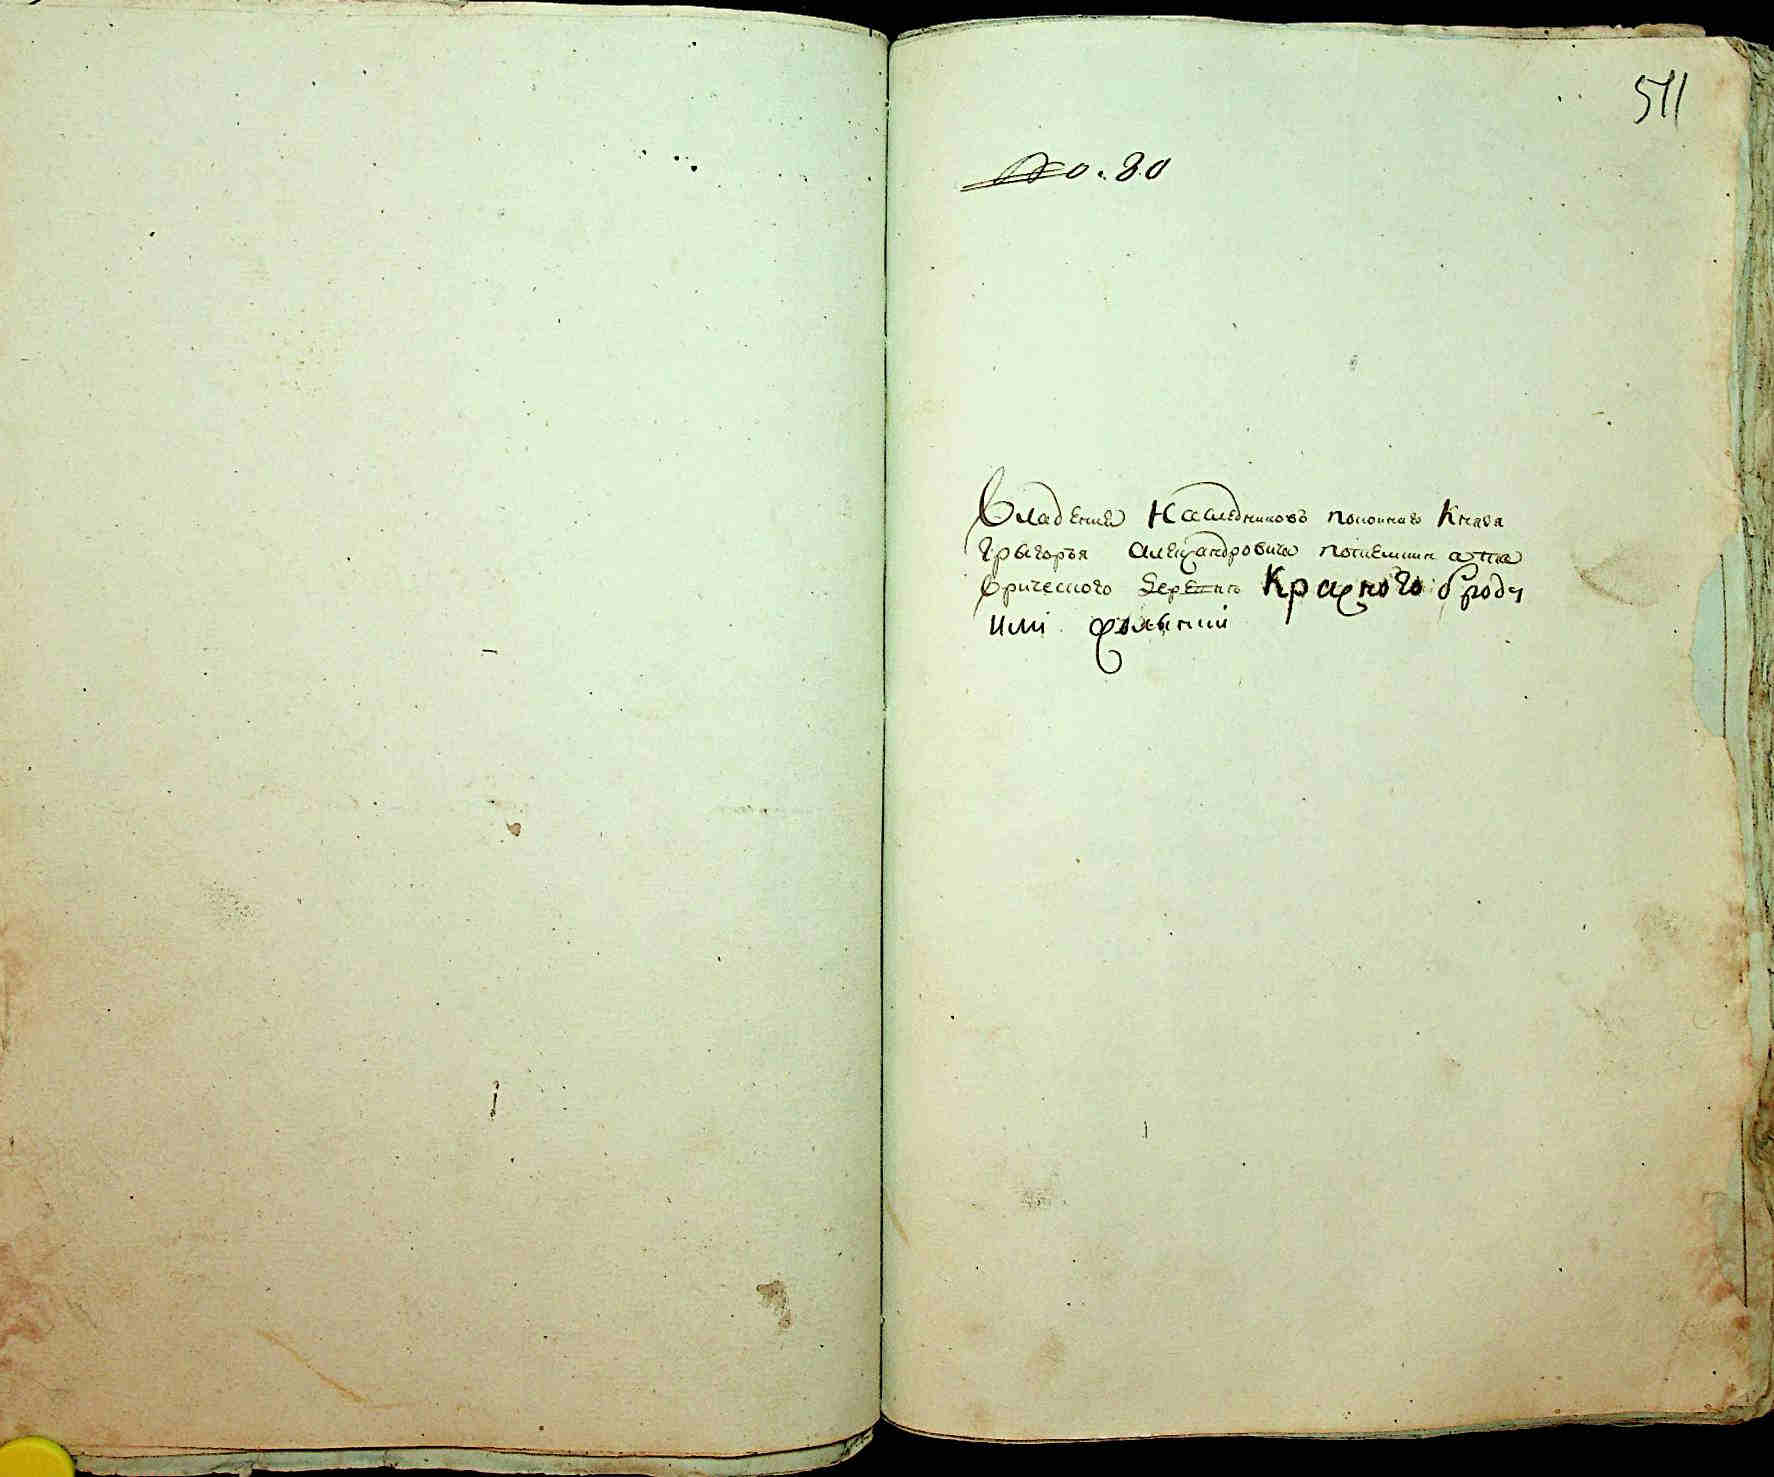 511
No. 80
Владение Наследниковъ покоинаго Князя
Грыгорья Александровича потиемкин а тав
рического деревнь Красного броду
или